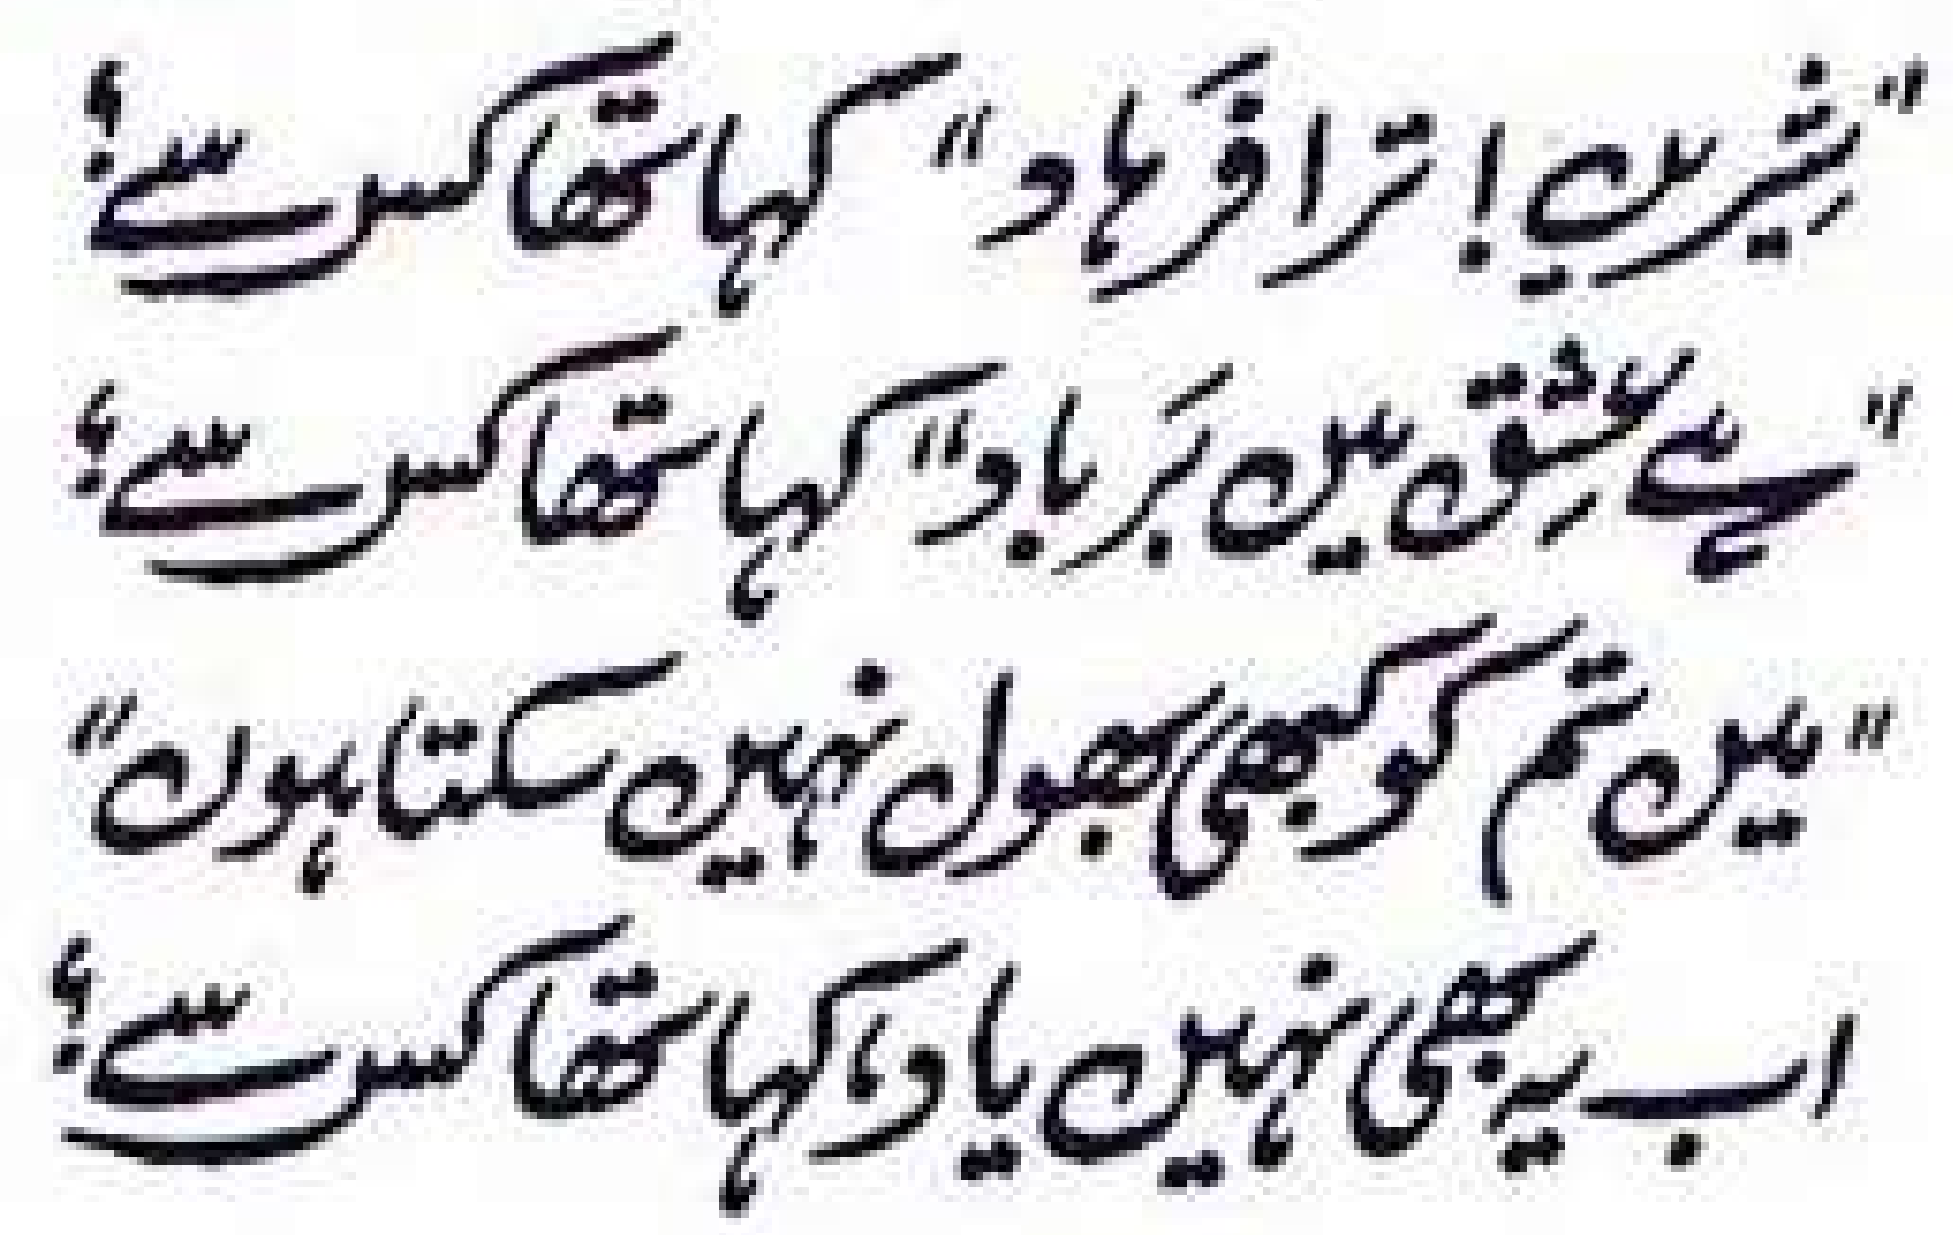 "شِیریں! ترا فَرہاد" کہا تھا کس سے؟
"ہے عِشق میں بَرباد" کہا تھا کس سے؟
"میں تم کو کبھی بھول نہیں سکتا ہوں"
اب یہ بھی نہیں یاد، کہا تھا کس سے؟